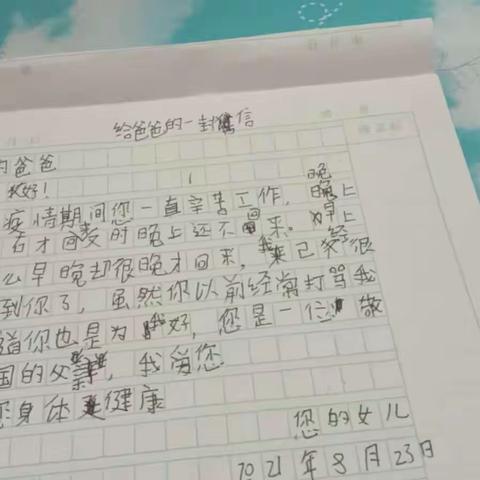 给爸爸的一封信
的爸爸
好!
疫情期间您一直辛苦工作,晚上
才回 时晚上还不回来。早上
么早晚却很晚才回来,我 已经很
到你了,虽然你以前经常打骂我
道你也是为我好,您是一位 敬
国的父亲,我爱您
身体健康
您的女儿
2021年8月23日